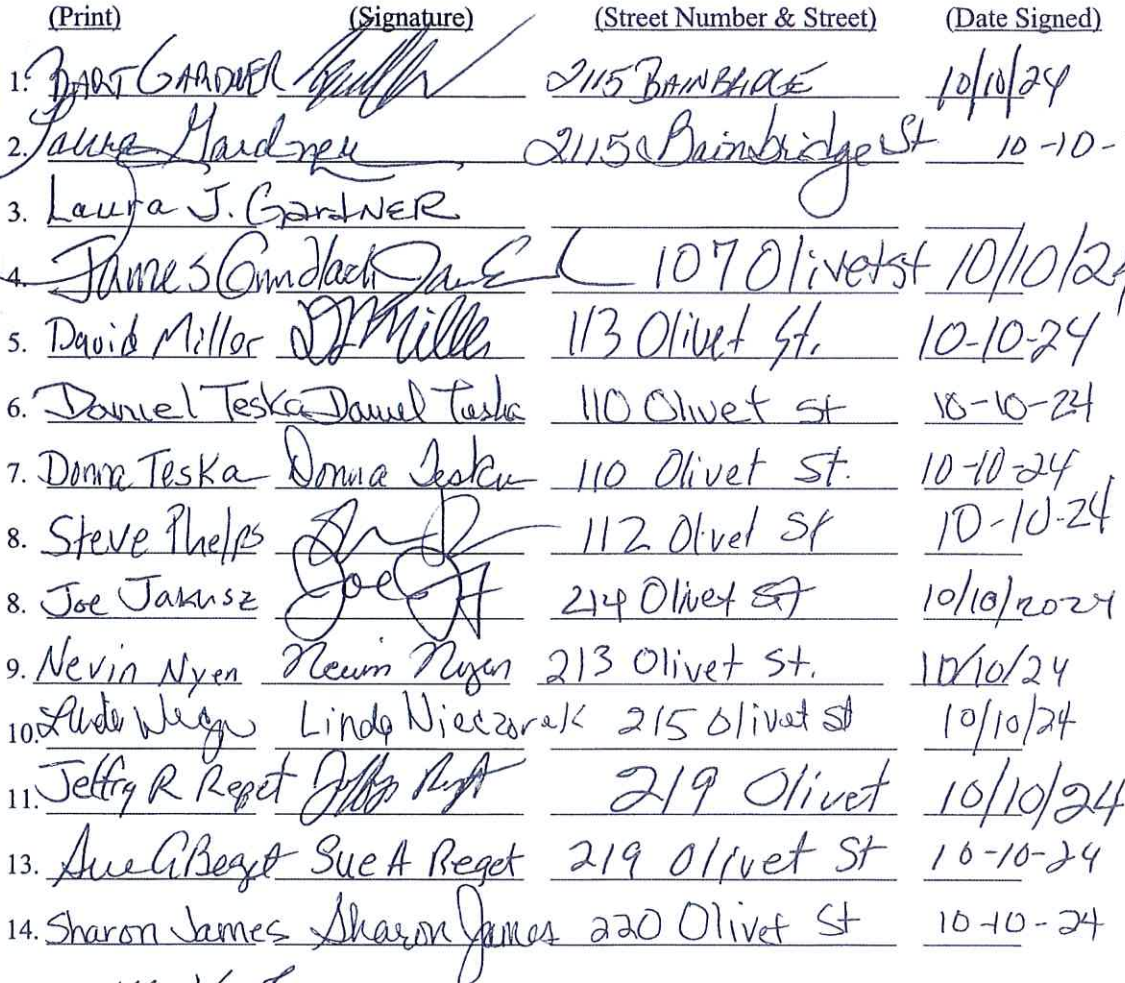 (Print) (Signature) (Street Number & Street) (Date Signed)
1. BART GARDNER 2115 BAINBRIDGE 10/10/24
2. Laura Gardner 2115 Bainbridge St 10-10-
3. Laura J. GardNER
4. James Gundlach 107 Olivet st 10/10/24
5. David Miller DJ Miller 113 Olivet St. 10-10-24
6. Daniel Teska Daniel Teska 110 Olivet St 10-10-24
7. Donna Teska Donna Teska 110 Olivet St. 10-10-24
8. Steve Phelps 112 Olivet St 10-10-24
8. Joe Jakusz Joe 214 Olivet St 10/10/2024
9. Nevin Nyen Nevin Nyen 213 Olivet St. 10/10/24
10. Linda Linda Wieczorek 215 Olivet St 10/10/24
11. Jeffry R Reget 219 Olivet 10/10/24
13. Sue A Reget Sue A Reget 219 Olivet St 10-10-24
14. Sharon James Sharon James 220 Olivet St 10-10-24